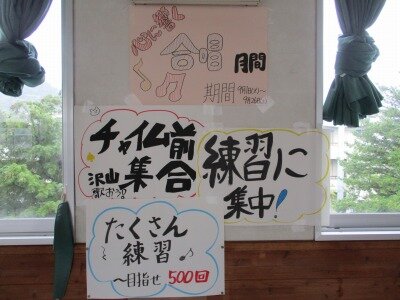 心に響く
合唱
月間
期間
チャイム前
集合
沢山
歌お沼
練習に
集中!
たくさん
練習
〜目指せ500回